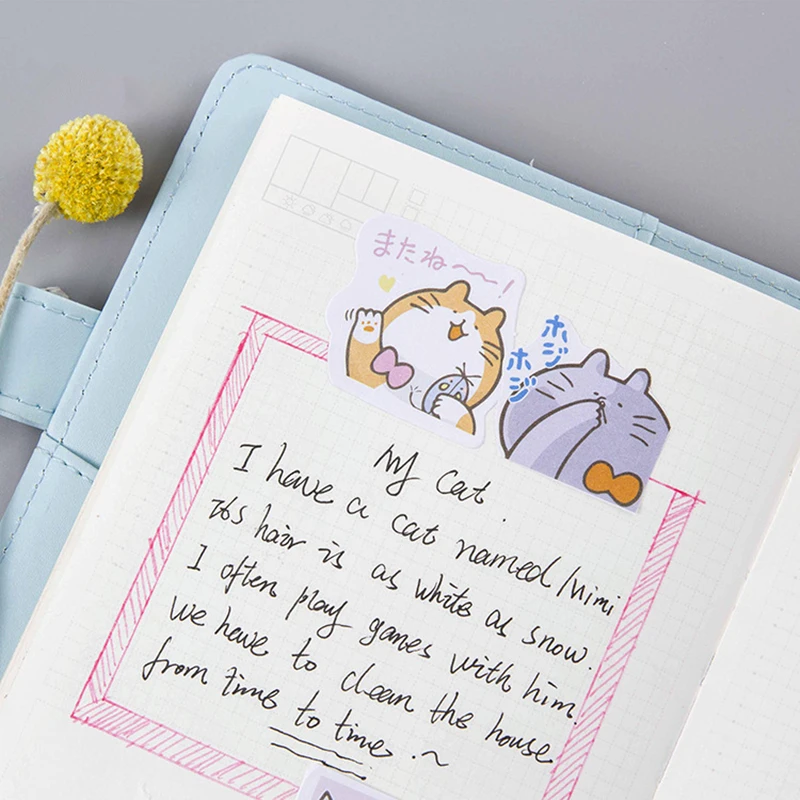 またね〜〜!
ホジ
ホジ
My Cat.
I have a cat named Mimi
its hair is as white as snow.
I often play games with him.
we have to clean the house
from time to time.~